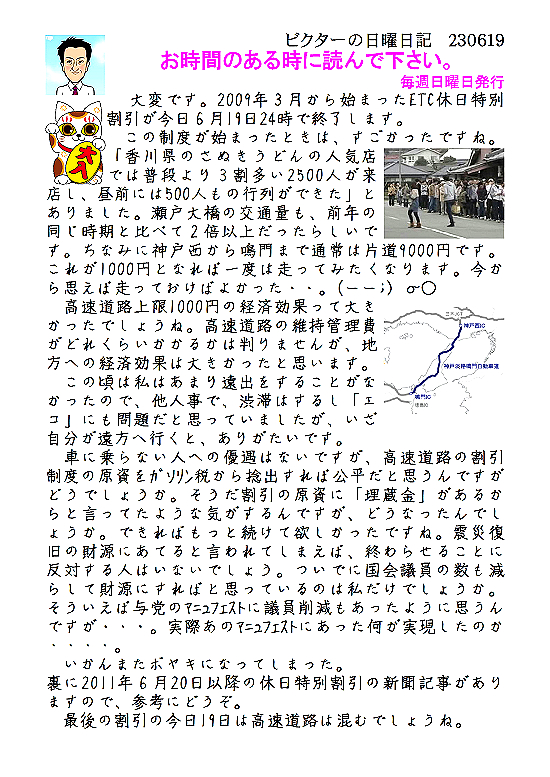 ビクターの日曜日記　230619
お時間のある時に読んで下さい。
毎週日曜日発行
大変です。2009年３月から始まったETC休日特別
割引が今日６月19日24時で終了します。
この制度が始まったときは、すごかったですね。
「香川県のさぬきうどんの人気店
では普段より３割多い2500人が来
店し、昼前には500人もの行列ができた」と
ありました。瀬戸大橋の交通量も、前年の
同じ時期と比べて２倍以上だったらしいで
す。ちなみに神戸西から鳴門まで通常は片道9000円です。
これが1000円となれば一度は走ってみたくなります。今か
ら思えば走っておけばよかった・・。(ーー;)　σ○
高速道路上限1000円の経済効果って大き
かったでしょうね。高速道路の維持管理費
がどれくらいかかるかは判りませんが、地
方への経済効果は大きかったと思います。
この頃は私はあまり遠出をすることがな
かったので、他人事で、渋滞はするし「エ
コ」にも問題だと思っていましたが、いざ
自分が遠方へ行くと、ありがたいです。
車に乗らない人への優遇はないですが、高速道路の割引
制度の原資をｶﾞｿﾘﾝ税から捻出すれば公平だと思うんですが
どうでしょうか。そうだ割引の原資に「埋蔵金」があるか
らと言ってたような気がするんですが、どうなったんでし
ょうか。できればもっと続けて欲しかったですね。震災復
旧の財源にあてると言われてしまえば、終わらせることに
反対する人はいないでしょう。ついでに国会議員の数も減
らして財源にすればと思っているのは私だけでしょうか。
そういえば与党のﾏﾆｭﾌｪｽﾄに議員削減もあったように思うん
ですが・・・。実際あのﾏﾆｭﾌｪｽﾄにあった何が実現したのか
・・・・。
いかんまたボヤキになってしまった。
裏に2011年６月20日以降の休日特別割引の新聞記事があり
ますので、参考にどうぞ。
最後の割引の今日19日は高速道路は混むでしょうね。
神戸西IC
神戸淡路鳴門自動車道
鳴門IC